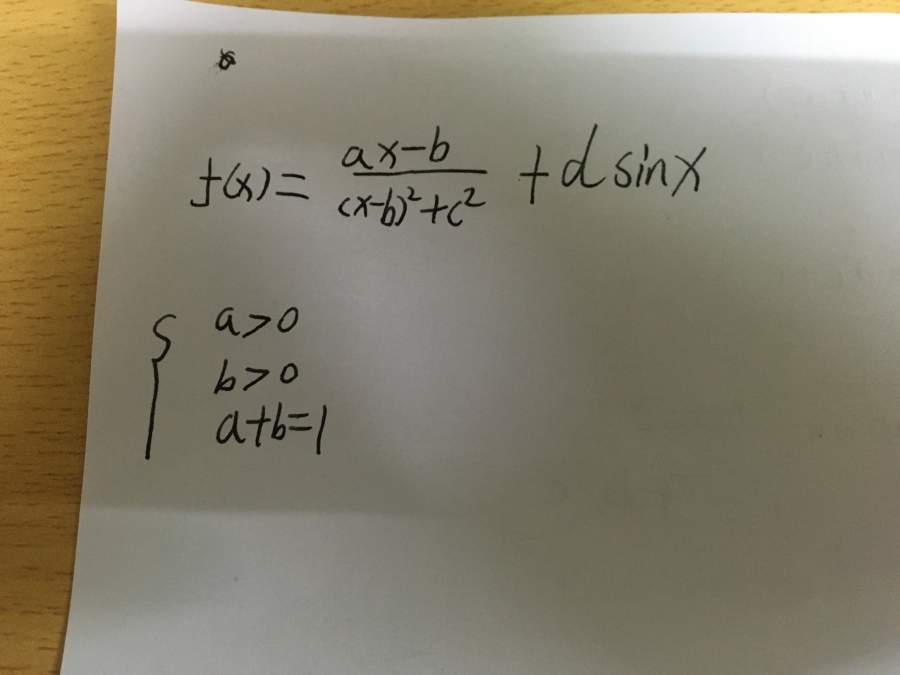 f(x) = \frac{ax-b}{(x-b)^2+c^2} + d sin x
{ a>0
b>0
a+b=1